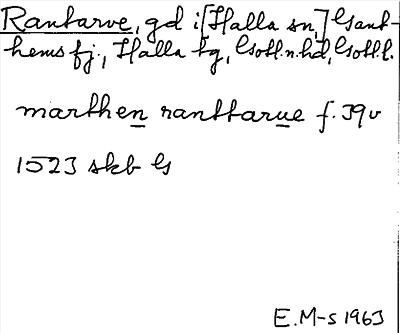 Rantarve, gd i [Halla sn,] Gant-
hems fj., Halla tg, Gotl.n.hd, Gotl.l.
marthen ranttarue f. 39v
1523 skb G
E.M-s 1963